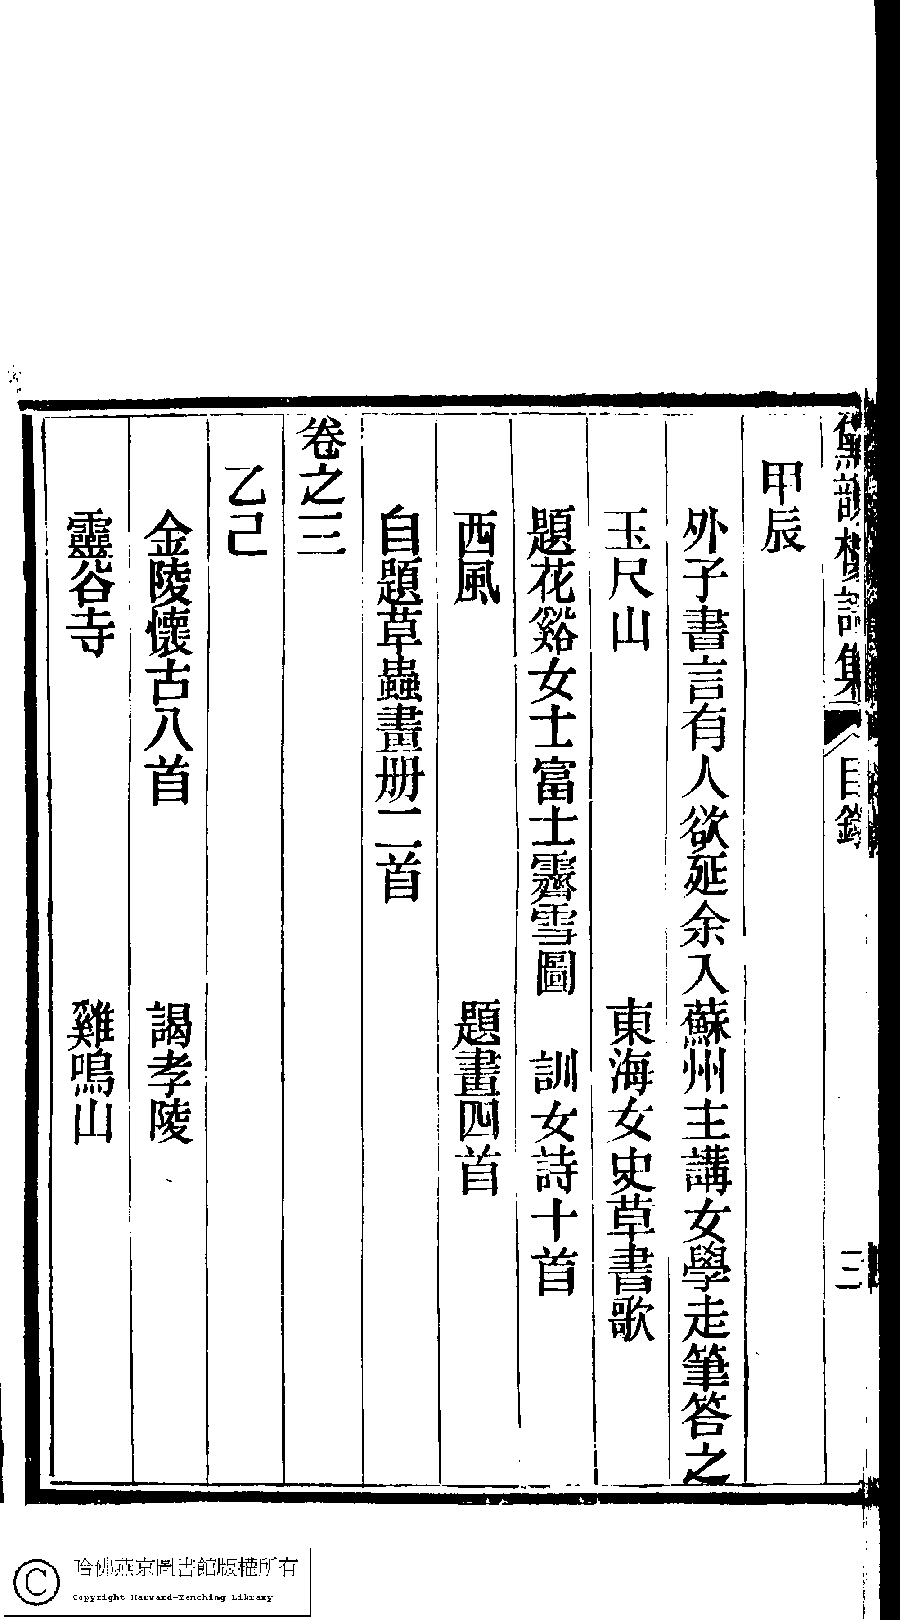 黛韻樓詩集 目錄 三
甲辰
外子書言有人欲延余入蘇州主講女學走筆答之
玉尺山 東海女史草書歌
題花谿女士富士霽雪圖 訓女詩十首
西風 題畫四首
自題草蟲畫册二首
卷之三
乙己
金陵懷古八首 謁孝陵
靈谷寺 雞鳴山
哈佛燕京圖書館版權所有
Copyright Harvard-Yenching Library